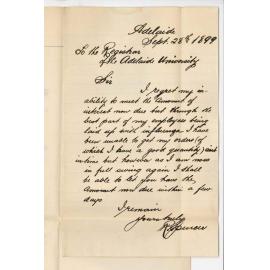 Adelaide
Sept. 28th 1899
To the Registrar
of the Adelaide University
Sir
I regret my in
ability to meet the amount of
interest now due but through the
best part of my employees being
laid up with influenza I have
been unable to get my orders (of
which I have a good quantity) out
in time but however as I am now
in full swing again I shall
be able to let you have the
amount now due within a few
days
I remain
yours truly
R Spencer